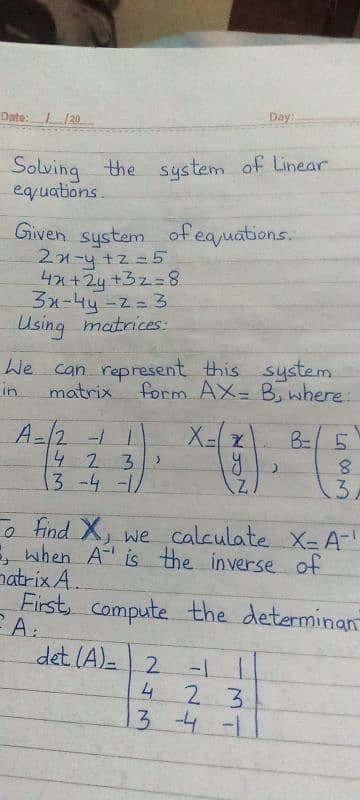 Date: / /20 Day:
Solving the system of Linear
equations.
Given system of equations:
2x-y+z=5
4x+2y+3z=8
3x-4y-z=3
Using matrices:
We can represent this system
in matrix form AX=B, where:
A=(2 -1 1 X=(x B=(5
4 2 3), y), 8
3 -4 -1) z) 3
To find X, we calculate X=A⁻¹
, when A⁻¹ is the inverse of
matrix A.
First, compute the determinan
A:
det (A)=|2 -1 1|
4 2 3
3 -4 -1|